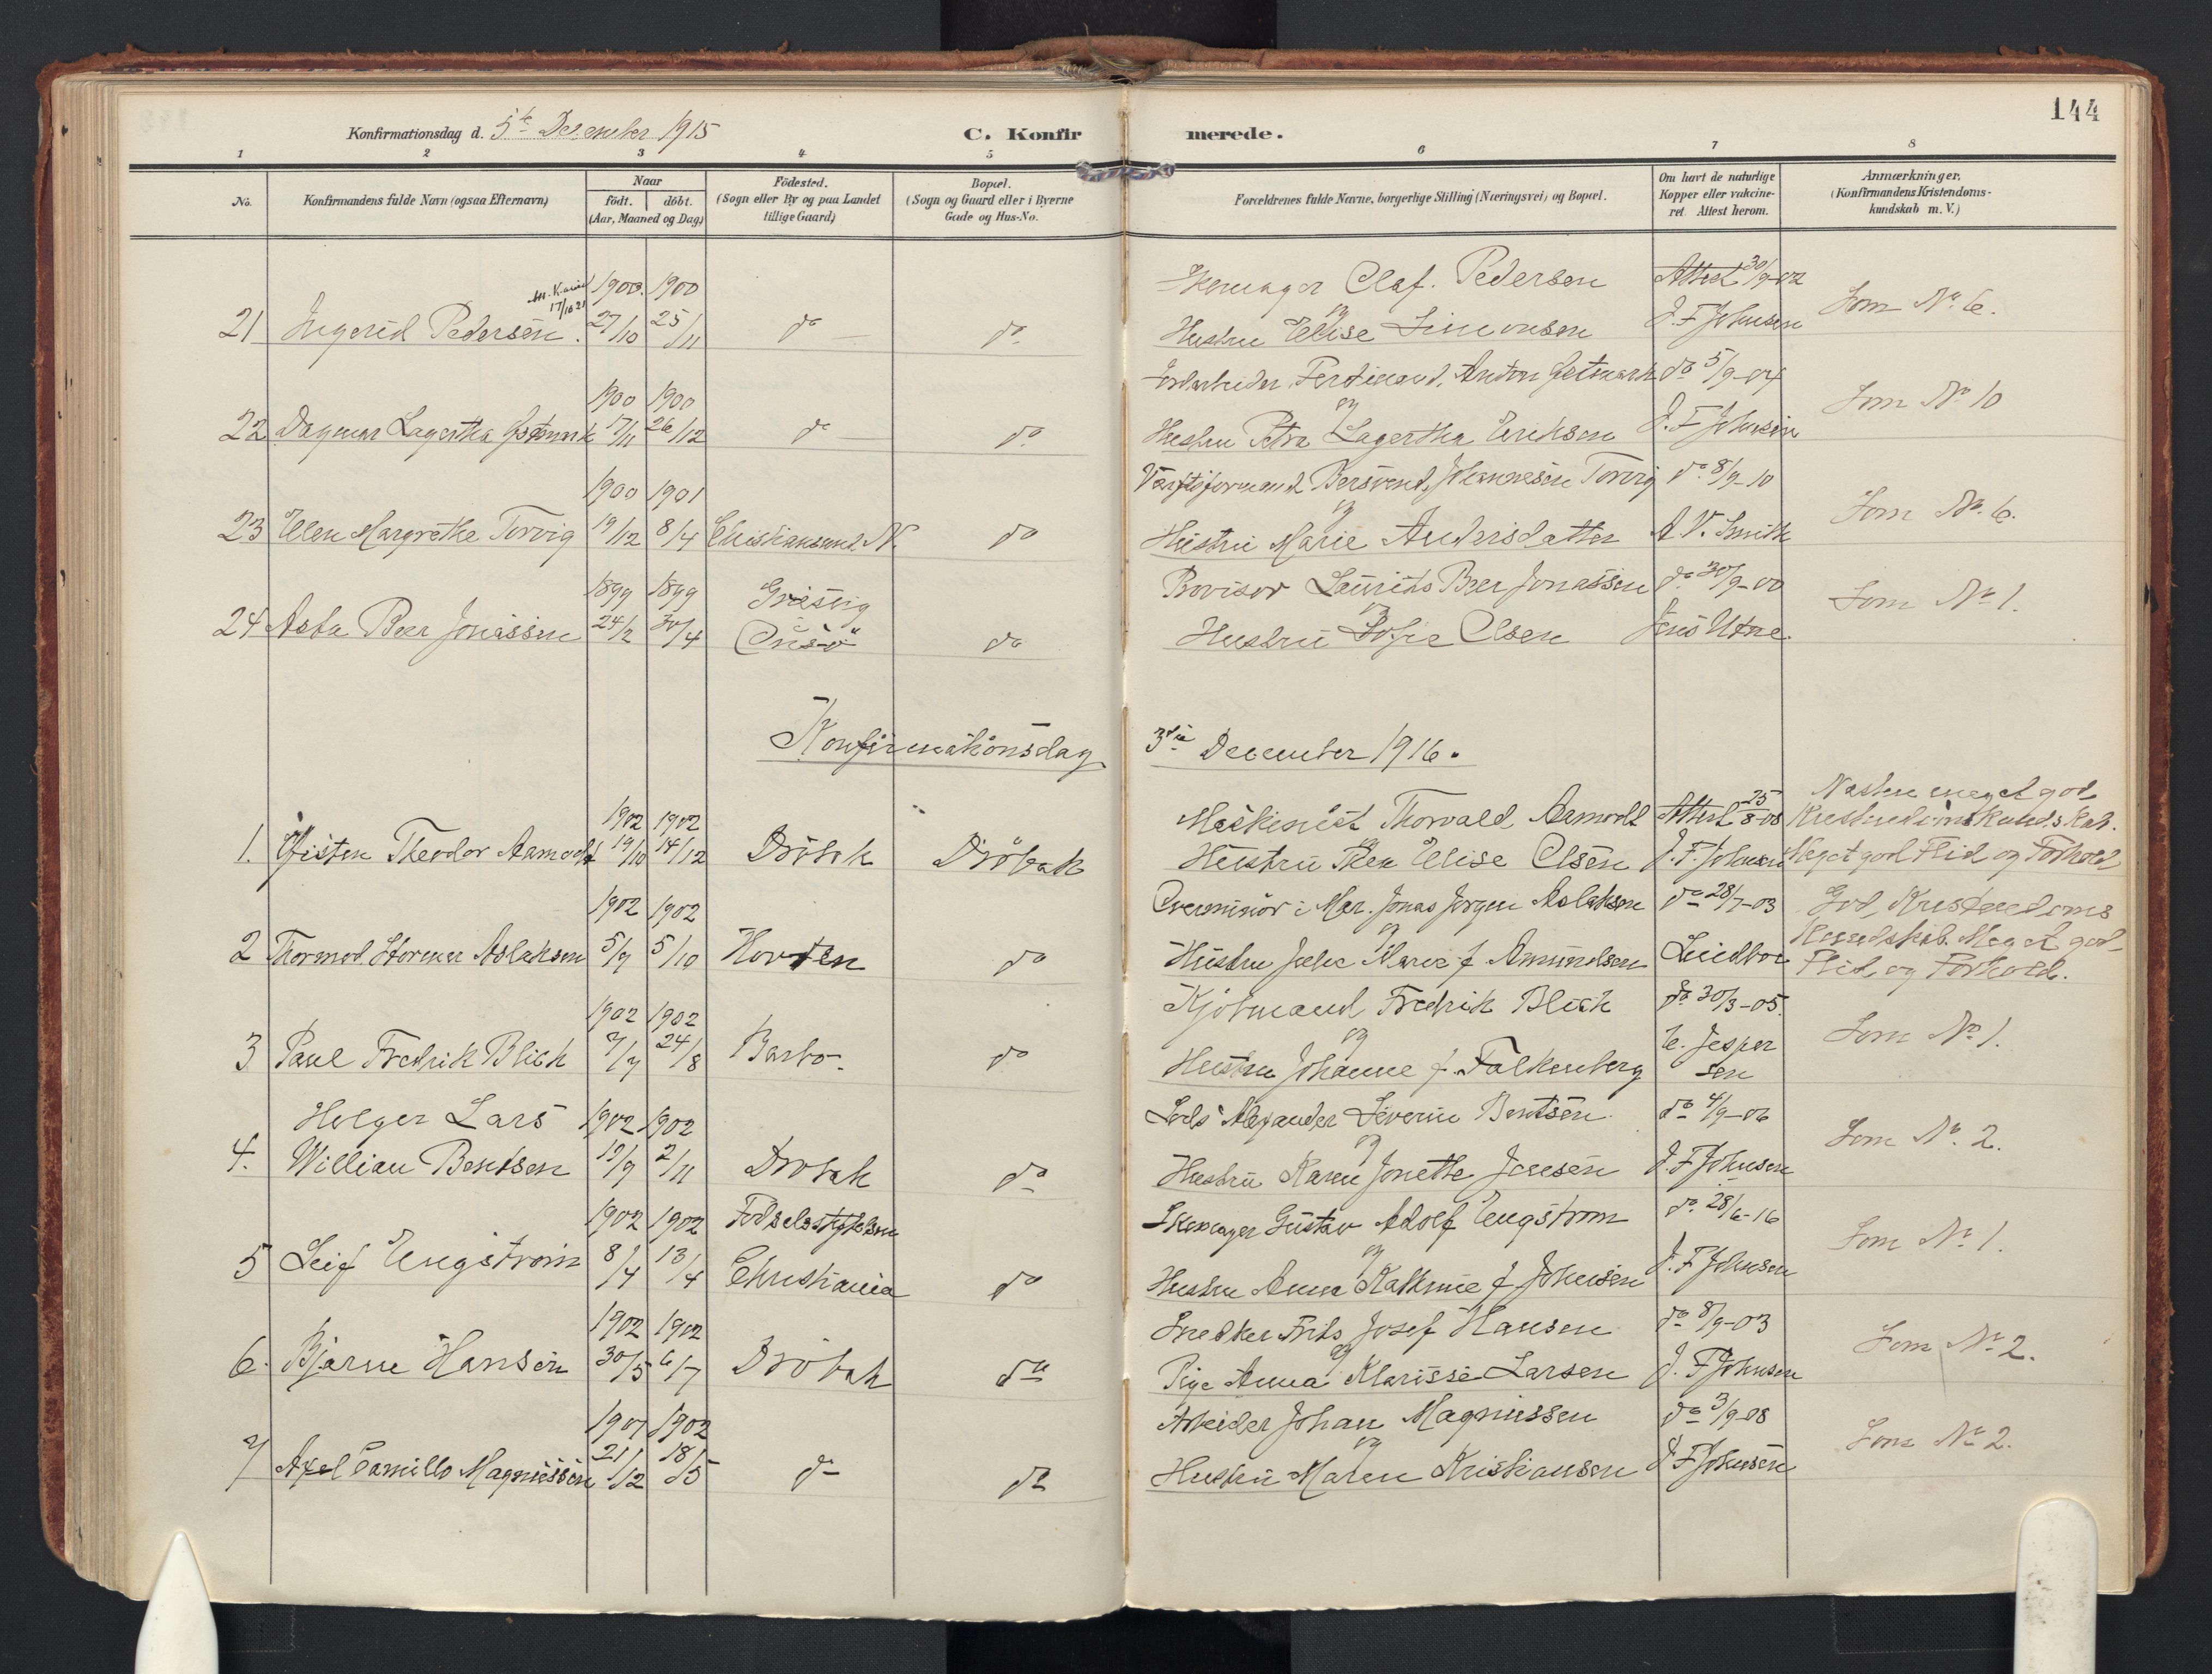 144
Konfirmationsdag d. 5te December 1915
C. Konfirmerede.
1 2 3 4 5 6 7 8
No.
Konfirmandens fulde Navn (ogsaa Efternavn)
Naar
födt. döbt.
(Aar, Maaned og Dag)
Födested.
(Sogn eller By og paa Landet
tillige Gaard)
Bopæl.
(Sogn og Gaard eller i Byerne
Gade og Hus-No.
Forældrenes fulde Navne, borgerlige Stilling (Næringsvei) og Bopæl.
Om havt de naturlige
Kopper eller vakcine-
ret. Attest herom.
Anmærkninger.
(Konfirmandens Kristendoms-
kundskab m. V.)
17/10 21
1900 1900 Skomager Olaf Pedersen Attest 30/9-02
21 Ingerid Pedersen. 27/10 25/11 do do og Hustru Elise Simonsen J. F Johnsen Som No 6.
1900 1900 Ferdinand Anton do 5/9-04
22 Dagmar Lagertha 17/11 26/12 do do og Hustru Petra Lagertha Eriksen J. F Johnsen Som No 10
1900 1901 Værftsformand Bersvend Johannesen Torvig do 8/9-10
23 Ellen Margrethe Torvig 19/12 8/4 Christiansund N. do og Hustru Marie Andersdatter A. V. Smith Som No. 6.
1899 1899 Græsvig Provisor Laurits Beer Jonassen do 30/9-00
24 Asta Beer Jonassen 24/2 30/4 Onsö do og Hustru Sofie Olsen Jens Utne. Som No 1.
Konfirmationsdag 3die December 1916.
1902 1902 Maskinist Thorvald Aamodt Attest 25/8-08
1. Øisten Theodor Aamodt 19/10 14/12 Dröbak Dröbak og Hustru Thea Elise Olsen J. F. Johnsen
Næsten meget god
Kristendomskundskab.
Meget god Flid og Forhold
1902 1902 Overminör i Mar. Jonas Jörgen Aslaksen do 28/7-03
2 Thormod Stormer Aslaksen 5/9 5/10 Horten do og Hustru Marie f. Amundsen Lindboe
God Kristendoms
Kundskab. Meget god
Flid og Forhold.
1902 1902 Kjöbmand Fredrik Blich do 30/3-05.
3 Paul Fredrik Blich 7/7 24/8 Barbo do og Hustru Johanne f. Falkenberg E. Jesper
sen Som No 1.
Holger Lars 1902 1902 Lods Alexander Severin Bentsen do 4/9-06
4. William Bentsen 19/9 2/11 Dröbak do og Hustru Karen Jonette Jensen J. F Johnsen Som No 2.
1902 1902 Födselsstiftelsen Skomager Gustav Adolf Engström do 28/6-16
5 Leif Engström 8/4 13/4 Christiania do og Hustru Anna Kathrine f Johnsen J. F Johnsen Som No 1.
1902 1902 Snedker Frits Josef Hansen do 8/9-03
6. Bjarne Hansen 30/5 6/7 Dröbak do og Pige Anna Klarisse Larsen J. F Johnsen Som No 2.
1901 1902 Arbeider Johan Magnussen do 3/9-08
7 Axel Camillo Magnussen 21/12 18/5 do do og Hustru Maren Kristiansen J F Johnsen Som No 2.